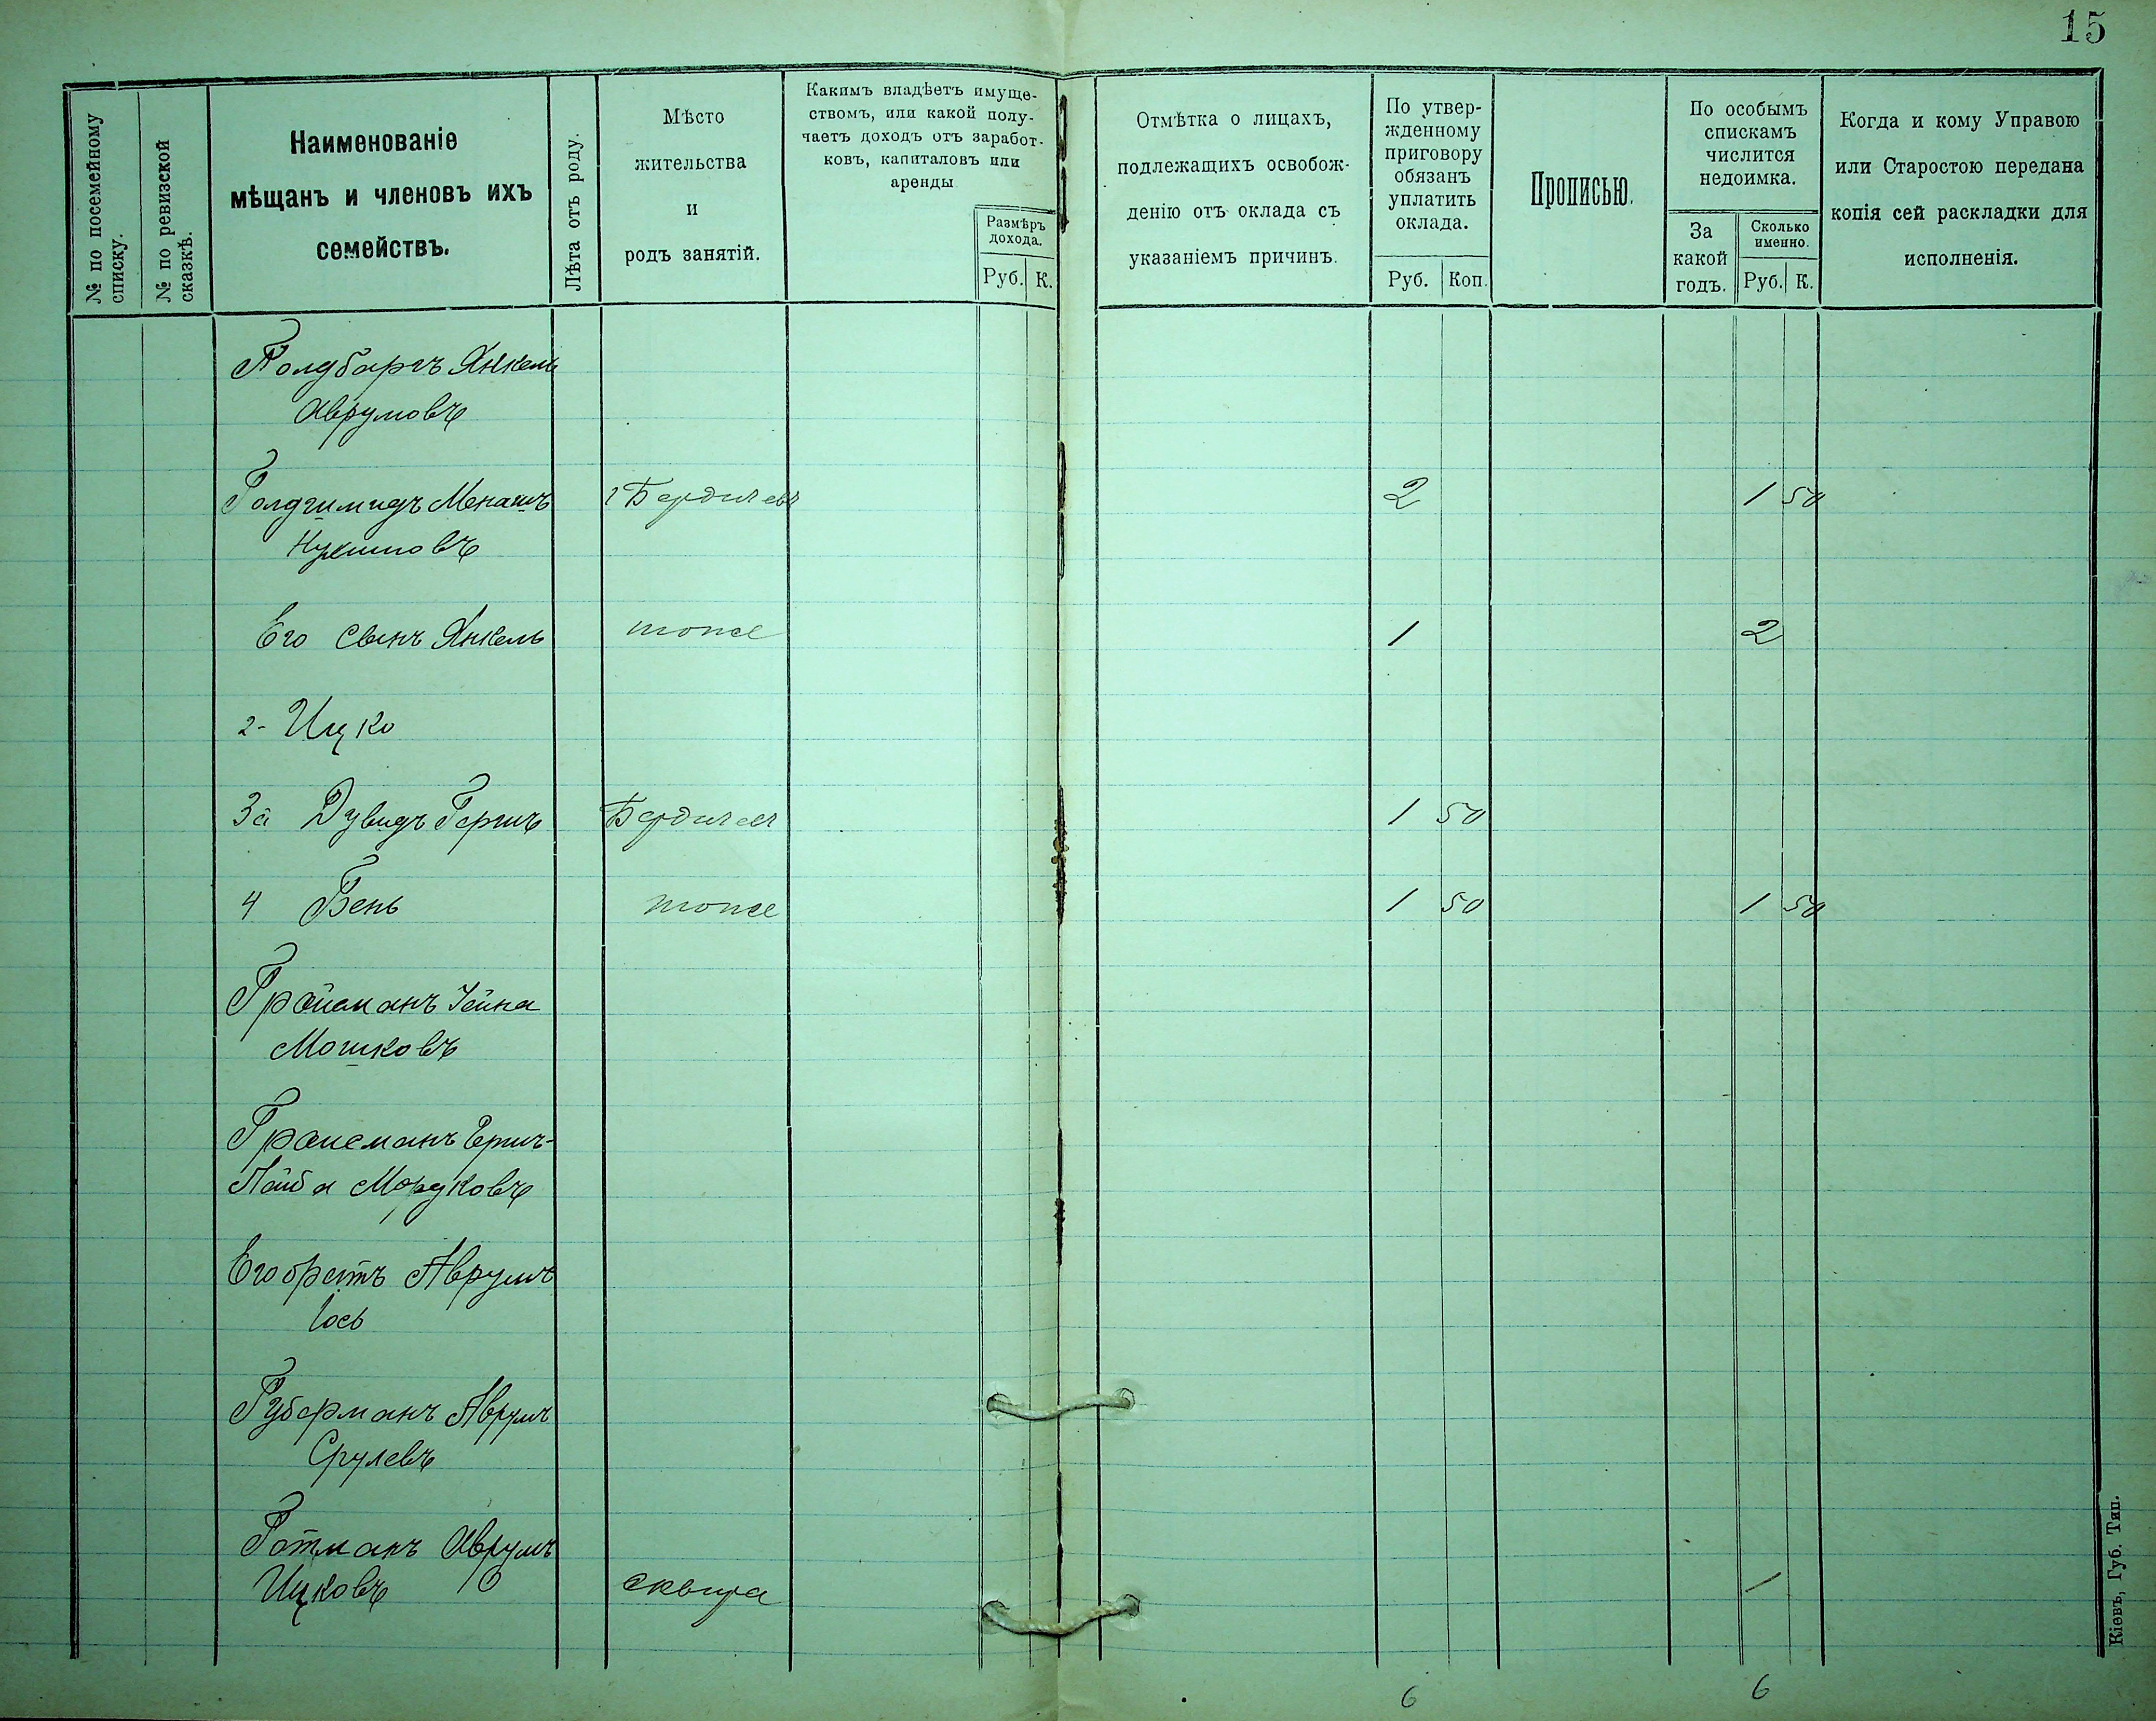 15
№ по посемейному
списку.
№ по ревизской
сказкѣ.
Наименованіе
мѣщанъ и членовъ ихъ
семействъ.
Лѣта отъ роду.
Мѣсто
жительства
и
родъ занятій.
Какимъ владѣетъ имуще-
ствомъ, или какой полу-
чаетъ доходъ отъ заработ-
ковъ, капиталовъ или
аренды
Размѣръ
дохода.
Руб. К.
Отмѣтка о лицахъ,
подлежащихъ освобож-
денію отъ оклада съ
указаніемъ причинъ.
По утвер-
жденному
приговору
обязанъ
уплатить
оклада.
Руб. Коп.
Прописью.
По особымъ
спискамъ
числится
недоимка.
За
какой
годъ.
Сколько
именно.
Руб. К.
Когда и кому Управою
или Старостою передана
копія сей раскладки для
исполненія.
Голдбаргъ Янкель
Аврумовъ
Голдшмидъ Менашъ г Бердичевъ 2 1 50
Нухимовъ
Его сынъ Янкель тоже 1 2
2- Ицко
3й Дувидъ Гершъ Бердичевъ 1 50
4 Бень тоже 1 50 1 50
Гройсманъ
Мошковъ
Гройсманъ Гершъ-
Лейба
Его братъ Аврумъ
Іось
Губерманъ Аврумъ
Срулевъ
Готманъ Аврумъ
Ицковъ сквира 1
6 6
Кіевъ, Губ. Тип.